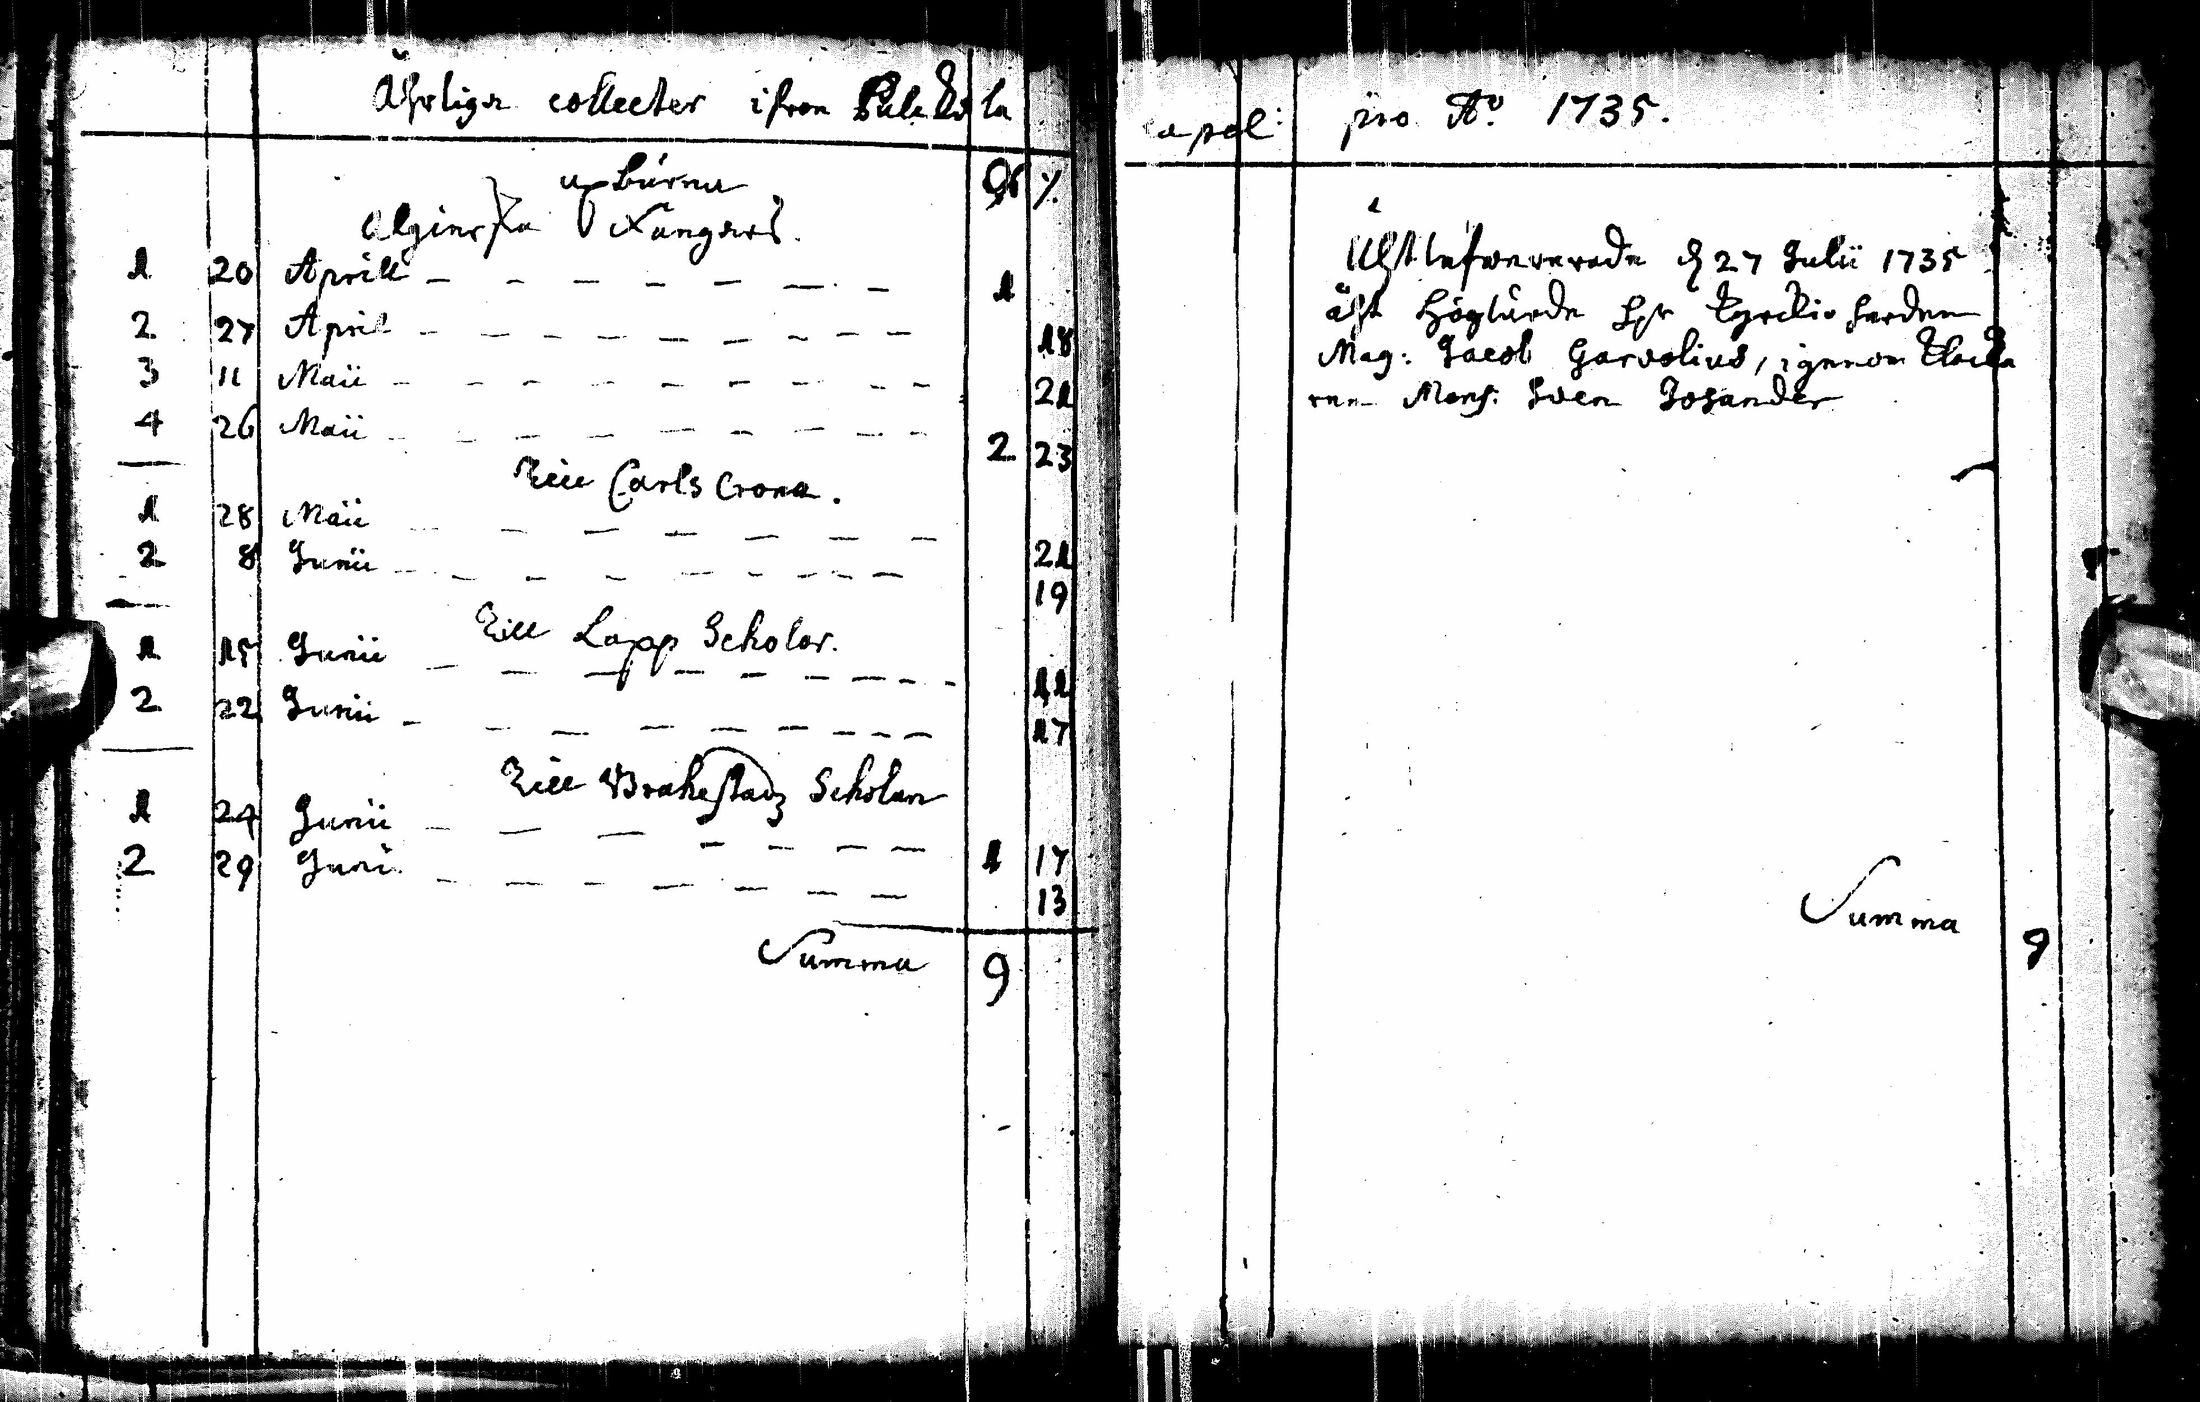 Åhrliga collecter ifron Pulckola
upburna ör %.
Algierska fångars.
1 20 Aprill 1
2 27 April 18
3 11 Maii 21
4 26 Maii 2 23
Till Carls Crona.
1 28 Maii 21
2 8 Junii 19
Till Lapp Scholor.
1 15 Junii 11
2 22 Junii 17
Till Brahestadz Scholan
1 24 Junii 1 17
2 29 Juni 13
Summa 9
capel: pro Aº 1735.
Åhtlefwererade d 27 Julii 1735
åht Höglärde Hr kyrckioherden
Mag: Jacob Garvolius, igenom klocka
ren Mons: Sven Josander
Summa 9